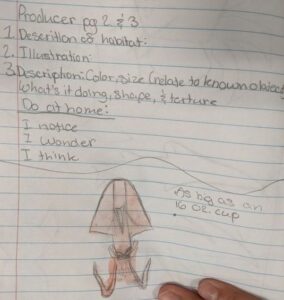 Producer pg 2 & 3
1. Descrition of habitat:
2. Illustration:
3. Description: Color, size (relate to known object)
What's it doing, shape, & texture
Do at home:
I notice
I wonder
I think
As big as an
16 oz. cup